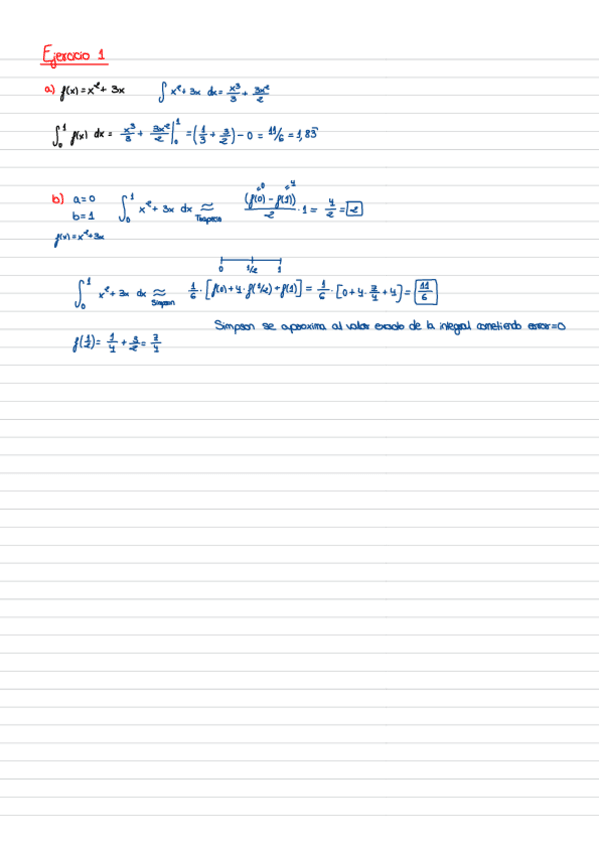 Ejercicio 1
a) f(x) = x² + 3x ∫ x² + 3x dx = x³/3 + 3x²/2
∫₀¹ f(x) dx = x³/3 + 3x²/2 |₀¹ = (1/3 + 3/2) - 0 = 11/6 = 1,83
b) a = 0
b = 1
f(x) = x² + 3x
∫₀¹ x² + 3x dx ≈ Trapecio (f(0) - f(1))/2 · 1 = 4/2 = 2
0 4
0 1/2 1
∫₀¹ x² + 3x dx ≈ Simpson 1/6 · [f(0) + 4 · f(1/2) + f(1)] = 1/6 · [0 + 4 · 7/4 + 4] = 11/6
Simpson se aproxima al valor exacto de la integral cometiendo error = 0
f(1/2) = 1/4 + 3/2 = 7/4